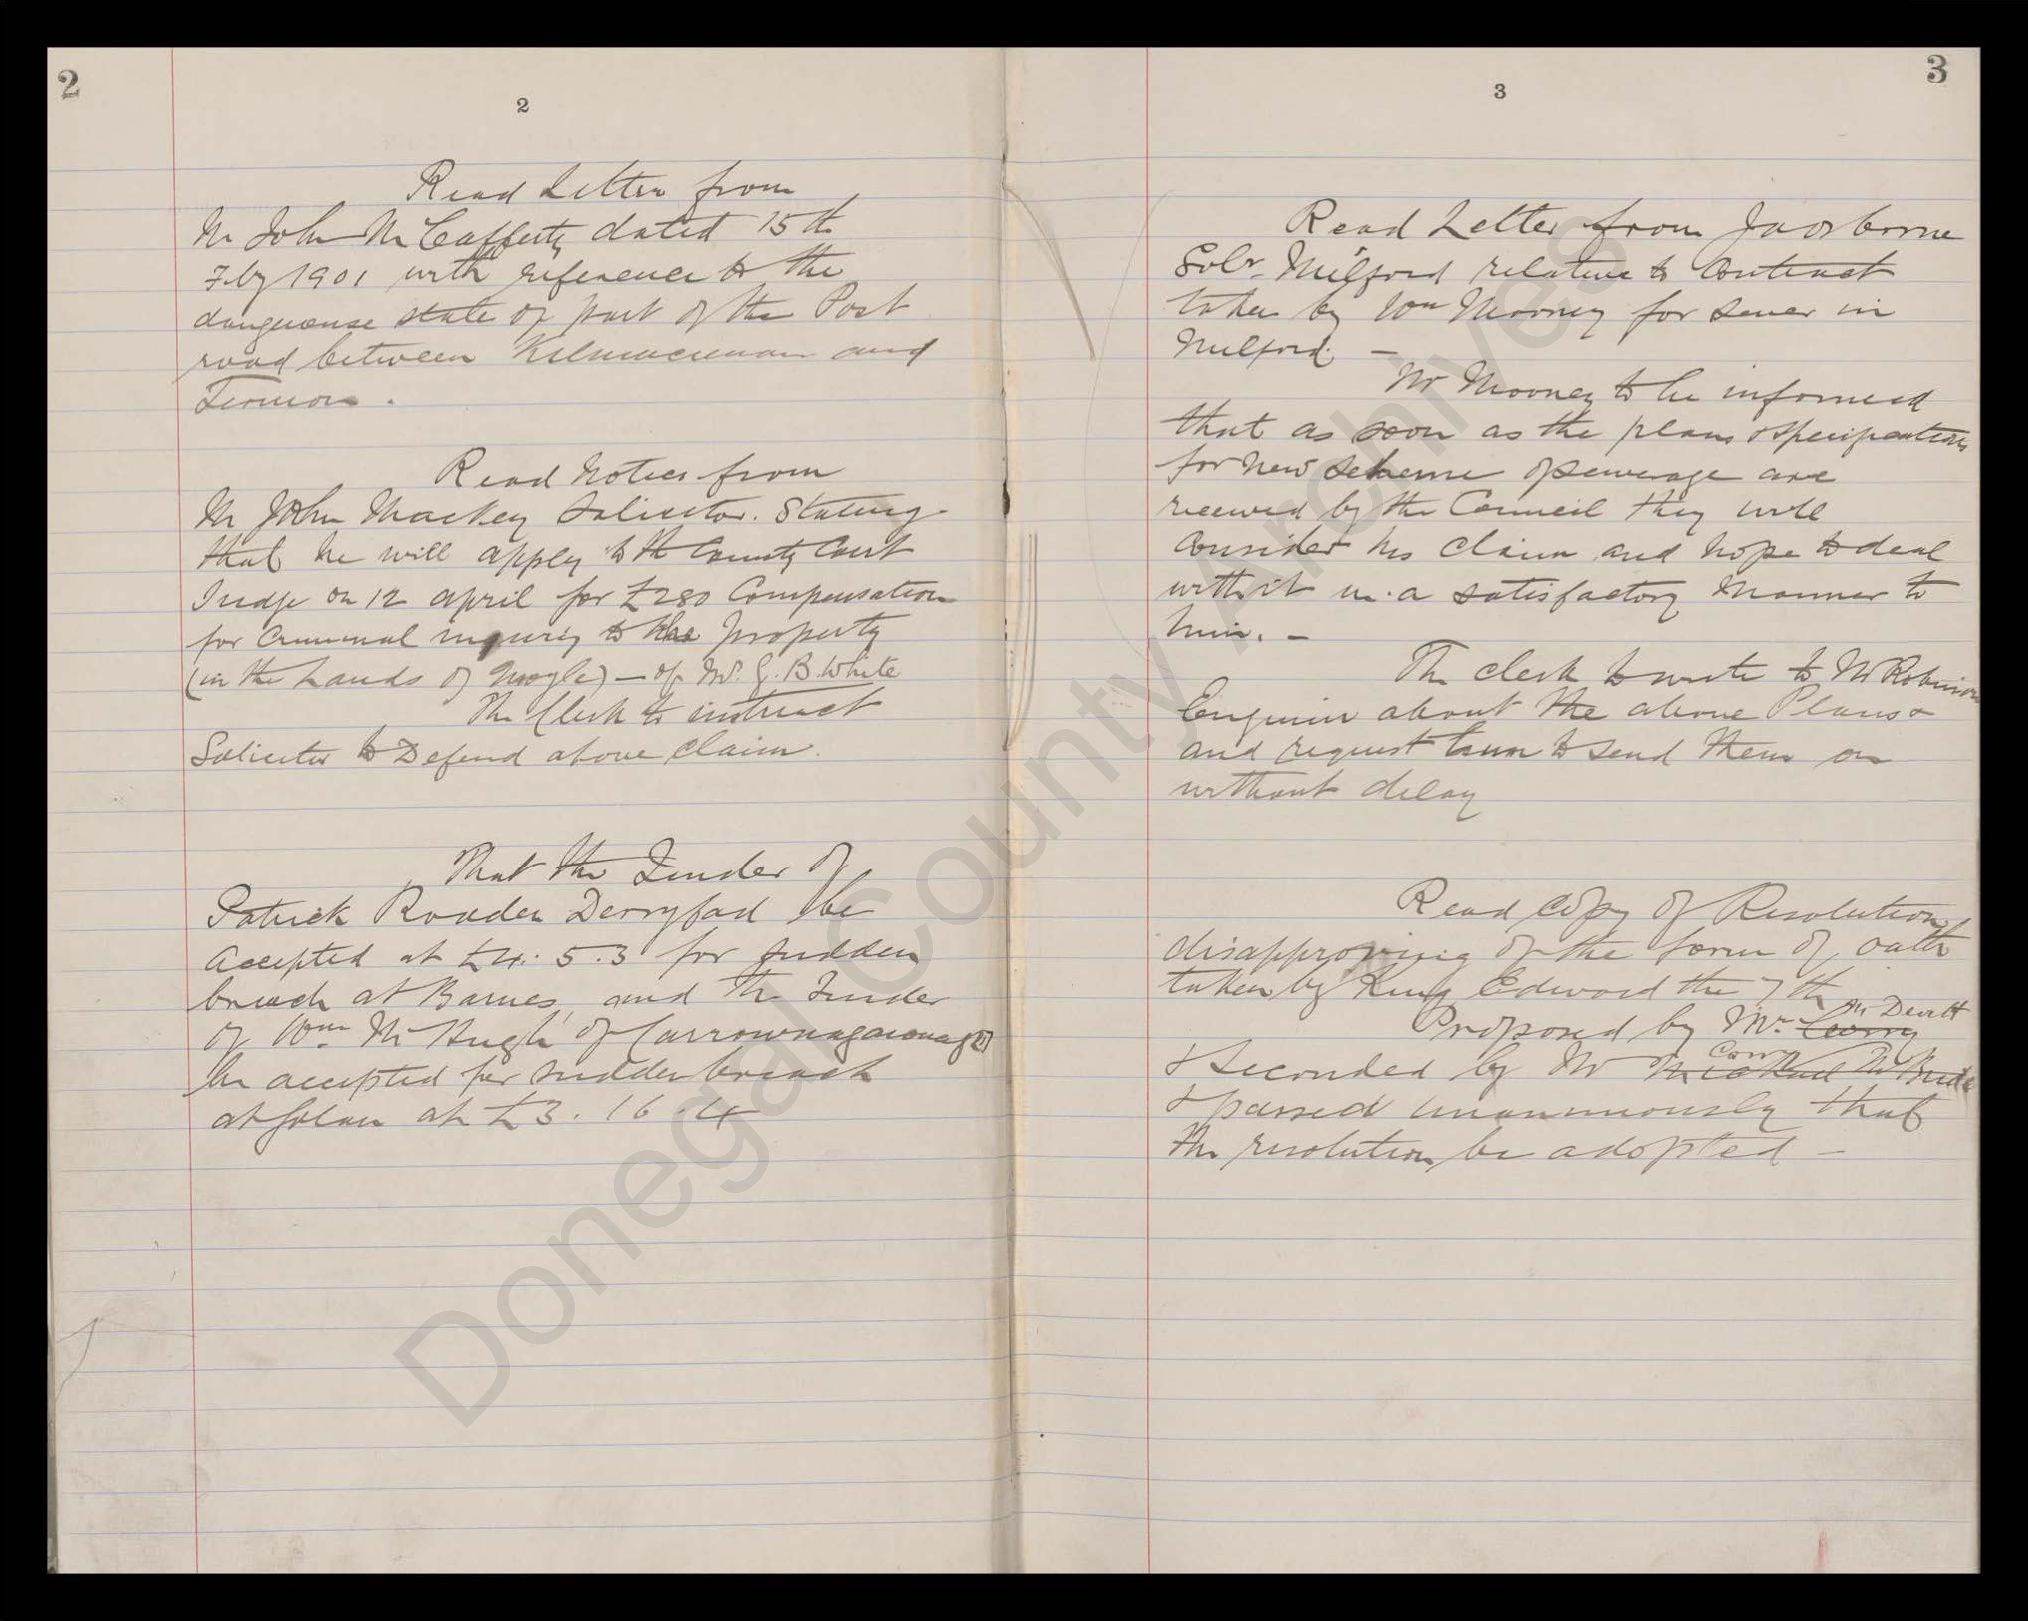 2
2
Read Letter from
Mr John McCafferty dated 15th
Feby 1901 with reference to the
dangerouse state of part of the Post
road between Kilmacrenan and
Termon.
Read Notice from
Mr John Mackey Solicitor. Stating
that he will apply to the County Court
Judge on 12 april for £280 Compensation
for Criminal injury to the property
(in the Lands of ) — of Mr. G. B. White
The Clerk to instruct
Solicitor to Defend above claim.
That the Tender of
Patrick Rodden Derryfad be
accepted at £4. 5. 3 for sudden
breach at Barnes, and the Tender
of Wm McHugh of
be accepted for sudden breach
at Golan at £3. 16. 4
3
3
Read Letter from Jas Osborne
Solr. Milford relative to Contract
taken by Wm Mooney for Sewer in
Milford. —
Mr Mooney to be informed
that as soon as the plans & specifications
for new scheme of sewerage are
received by the Council they will
consider his claim and hope to deal
with it in a satisfactory Manner to
him. —
The clerk to write to Mr Robinson
Engineer about the above Plans &
and request him to send them on
without delay
Read Copy of Resolution
disapproving of the form of oath
taken by King Edward the 7th
Mc Devitt
Proposed by Mr
& Seconded by Mr
& passed unanimously that
the resolution be adopted —
Donegal County Archives